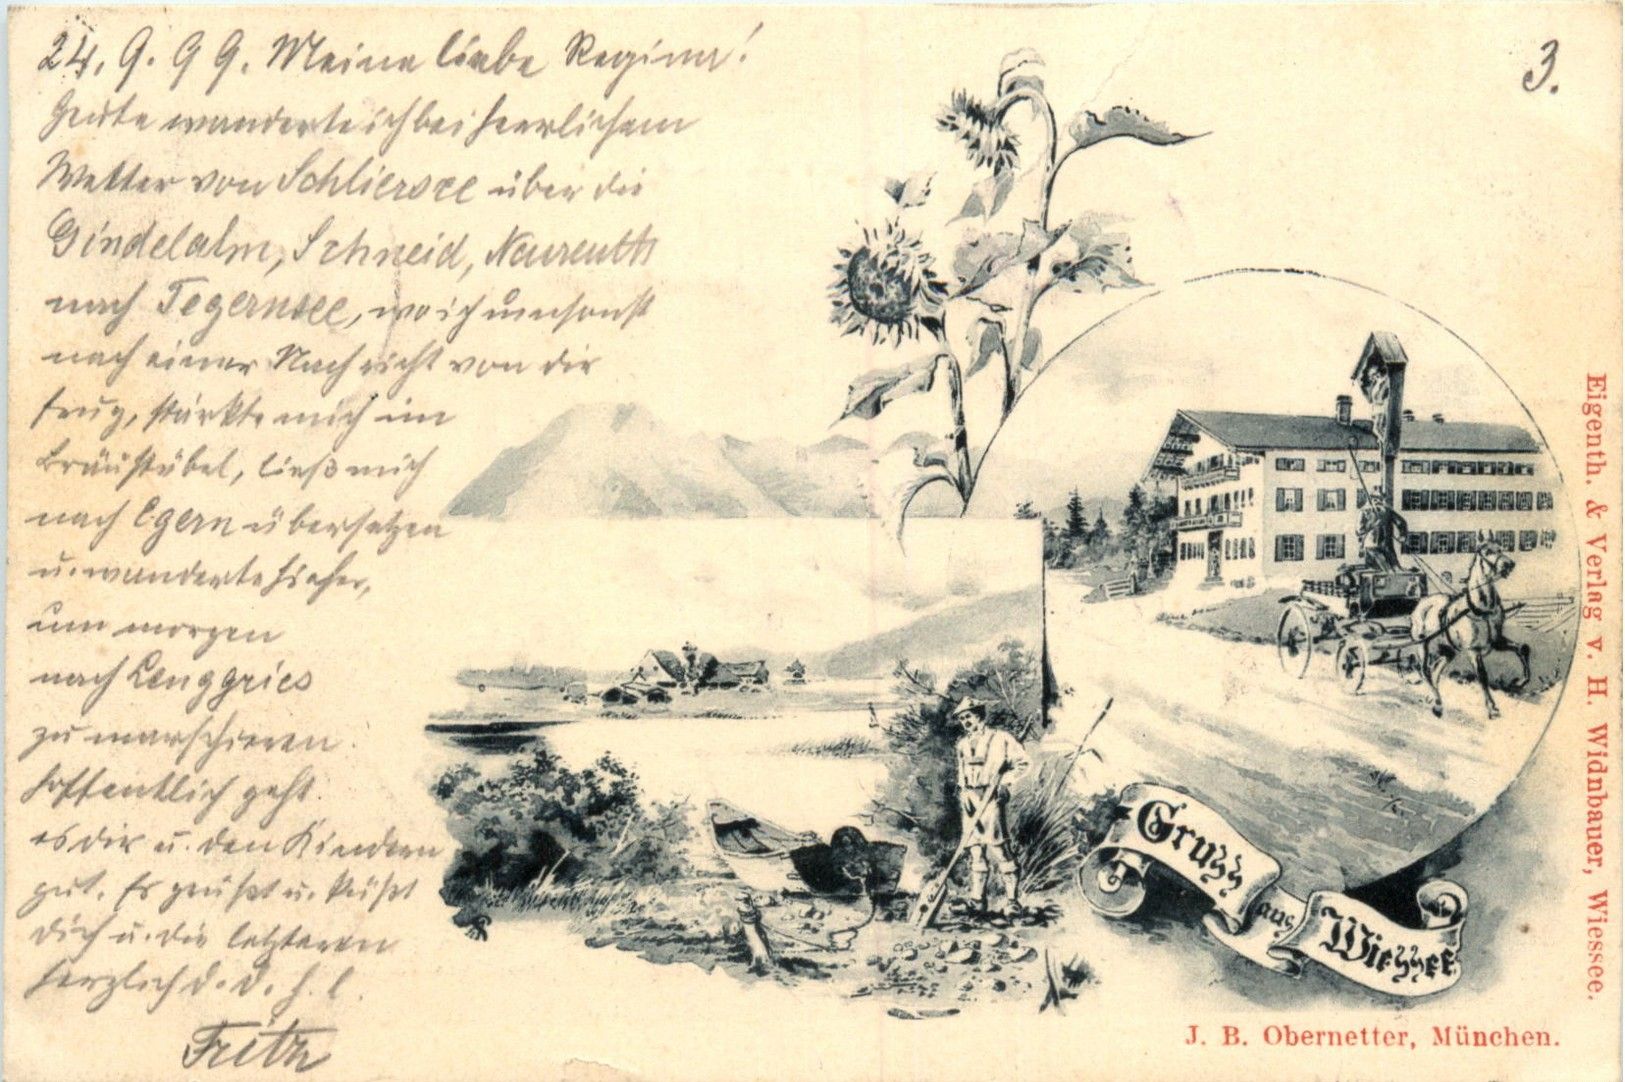 24. 9. 99. Meine liebe Regina!
3.
Heute wanderte ich bei herrlichem
Wetter von Schliersee über die
Gindelalm, Schneid, Neureuth
nach Tegernsee, wo ich umsonst
nach einer Nachricht von dir
frug, stärkte mich im
Bräustübel, ließ mich
nach Egern übersetzen
u. wanderte hieher,
um morgen
nach Lenggries
zu marschieren.
Hoffentlich geht
es dir u. den Kindern
gut. Es grüßt u. küßt
dich u. die letzteren
herzlich d. d. h. l.
Fritz
Gruss
aus
Wiessee
Eigenth. & Verlag v. H. Widnbauer, Wiessee.
J. B. Obernetter, München.